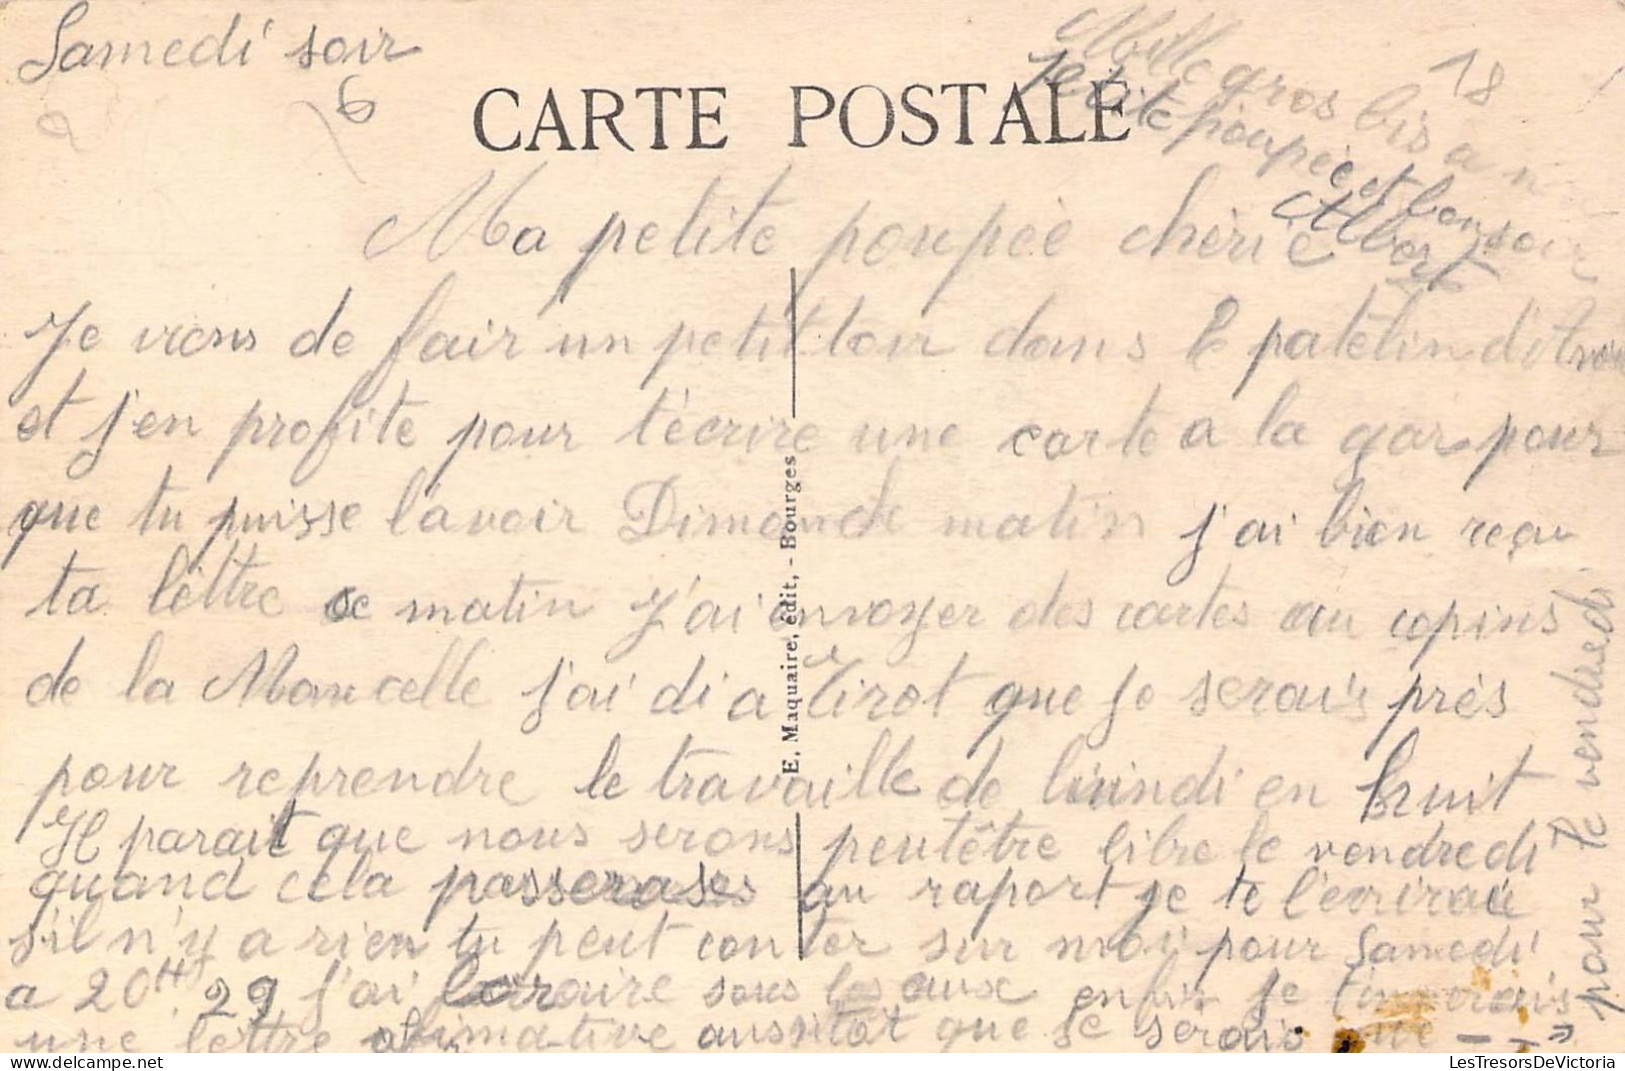 Samedi soir
6
18
CARTE POSTALE
Mille gros bis a
petite poupée et bonsoir
Albert
Ma petite poupée chérie
Je viens de fair un petit tour dans le patelin d'Avor
et j'en profite pour t'écrire une carte a la gar pour
que tu puisse l'avoir Dimanche matin j'ai bien reçu
ta lettre ce matin J'ai envoyer des cartes au copins
de la Marcelle j'ai di a Tirot que je serais près
pour reprendre le travaille de lundi en huit
Il parait que nous serons peutêtre libre le vendredi
quand cela passeras au raport je te l'écrirai
s'il n'y a rien tu peut conter sur moi pour Samedi
a 20H 29 j'ai horaire sous les enfin je
une lettre afirmative aussitôt que je serais
pour le vendredi
E. Maquaire, édit, - Bourges
LesTresorsDeVictoria